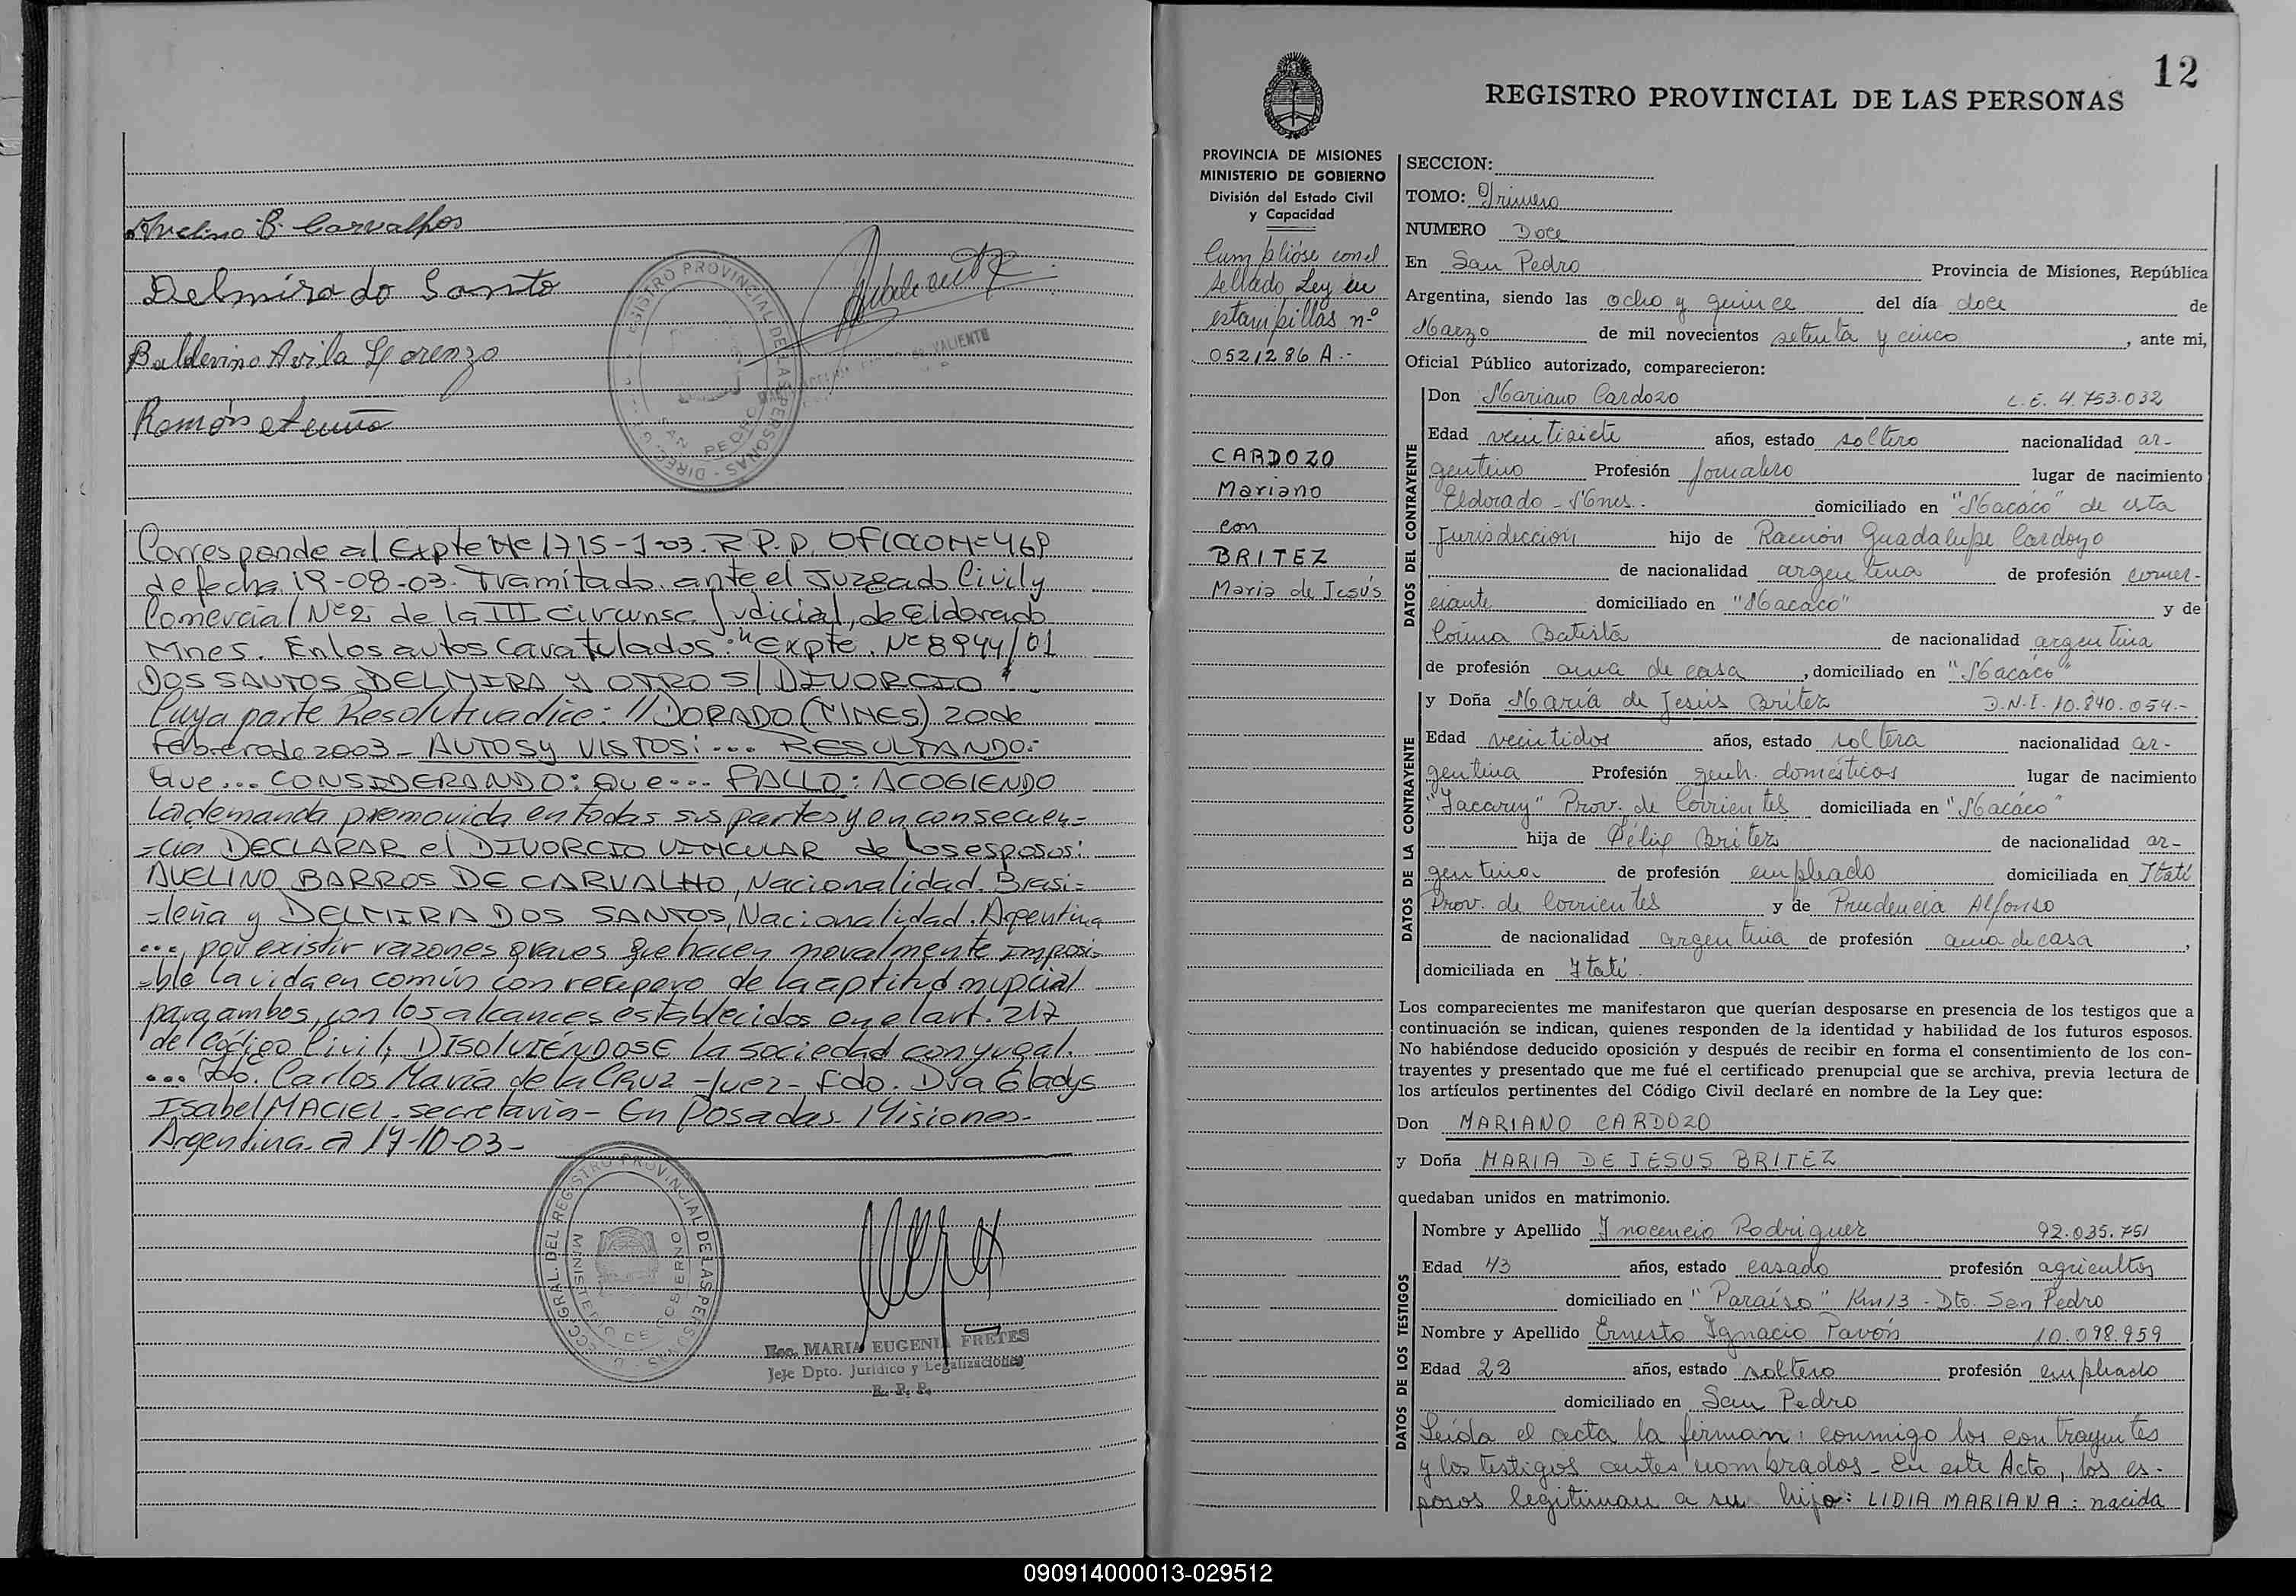 Avelino B. Carvalhos
Delmira do Santo
Balderino Avila Lorenzo
Ramón
REGISTRO PROVINCIAL DE LAS PERSONAS
SAN PEDRO
VALIENTE
Corresponde al Expte Nº 1715-J-03. R.P.P. OFICIO Nº 469
de fecha 19-08-03. Tramitado ante el Juzgado Civil y
Comercial Nº 2 de la III Circunsc. Judicial, de Eldorado
Mnes. En los autos caratulados: "Expte. Nº 8944/01
DOS SANTOS DELMIRA Y OTRO S/ DIVORCIO"
Cuya parte Resolutiva dice: //DORADO (MNES) 20 de
Febrero de 2003 - AUTOS y VISTOS: ... RESULTANDO:
Que... CONSIDERANDO: Que... FALLO: ACOGIENDO
la demanda promovida en todas sus partes y en consecuen=
=cia DECLARAR el DIVORCIO VINCULAR de los esposos:
AVELINO BARROS DE CARVALHO, Nacionalidad Brasi=
=leña y DELMIRA DOS SANTOS, Nacionalidad Argentina
... por existir razones graves que hacen moralmente imposi=
=ble la vida en común con recupero de la aptitud nupcial
para ambos, con los alcances establecidos en el art. 217
del Código Civil, DISOLVIÉNDOSE la sociedad conyugal.
... Fdo. Carlos María de la Cruz - Juez - Fdo. Dra Gladys
Isabel MACIEL - secretaria - En Posadas - Misiones -
Argentina a 17-10-03 -
GRAL. DEL REGISTRO PROVINCIAL DE LAS PERSONAS
MINISTERIO DE GOBIERNO
Esc. MARIA EUGENIA FRETES
Jefe Dpto. Jurídico y Legalizaciones
R. P. P.
12
REGISTRO PROVINCIAL DE LAS PERSONAS
PROVINCIA DE MISIONES
MINISTERIO DE GOBIERNO
División del Estado Civil
y Capacidad
Cumplióse con el
sellado Ley en
estampillas nº
0521286 A.-
CARDOZO
Mariano
con
BRITEZ
Maria de Jesús
SECCION:
TOMO: Primero
NUMERO Doce
En San Pedro Provincia de Misiones, República
Argentina, siendo las ocho y quince del día doce de
Marzo de mil novecientos setenta y cinco, ante mi,
Oficial Público autorizado, comparecieron:
DATOS DEL CONTRAYENTE
Don Mariano Cardozo L.E. 4.753.032
Edad veintisiete años, estado soltero nacionalidad ar-
gentino Profesión jornalero lugar de nacimiento
Eldorado - Mnes.- domiciliado en "Macaco" de esta
Jurisdicción hijo de Ramón Guadalupe Cardozo
de nacionalidad argentina de profesión comer-
ciante domiciliado en "Macaco" y de
Corina Batista de nacionalidad argentina
de profesión ama de casa, domiciliado en "Macaco"
DATOS DE LA CONTRAYENTE
y Doña María de Jesús Britez D.N.I. 10.840.054.-
Edad veintidos años, estado soltera nacionalidad ar-
gentina Profesión queh. domésticos lugar de nacimiento
"Yacarey" Prov. de Corrientes domiciliada en "Macaco"
hija de Félix Britez de nacionalidad ar-
gentina de profesión empleado domiciliada en Itatí
Prov. de Corrientes y de Prudencia Alfonso
de nacionalidad argentina de profesión ama de casa,
domiciliada en Itatí.
Los comparecientes me manifestaron que querían desposarse en presencia de los testigos que a
continuación se indican, quienes responden de la identidad y habilidad de los futuros esposos.
No habiéndose deducido oposición y después de recibir en forma el consentimiento de los con-
trayentes y presentado que me fué el certificado prenupcial que se archiva, previa lectura de
los artículos pertinentes del Código Civil declaré en nombre de la Ley que:
Don MARIANO CARDOZO
y Doña MARIA DE JESUS BRITEZ
quedaban unidos en matrimonio.
DATOS DE LOS TESTIGOS
Nombre y Apellido Inocencio Rodriguez 92.035.751
Edad 43 años, estado casado profesión agricultor
domiciliado en "Paraíso" Km 13 - Dto. San Pedro
Nombre y Apellido Ernesto Ignacio Pavón 10.098.959
Edad 22 años, estado soltero profesión empleado
domiciliado en San Pedro
Leída el acta la firman: conmigo los contrayentes
y los testigos antes nombrados - En este Acto, los es-
posos legitiman a su hija: LIDIA MARIANA: nacida
090914000013-029512